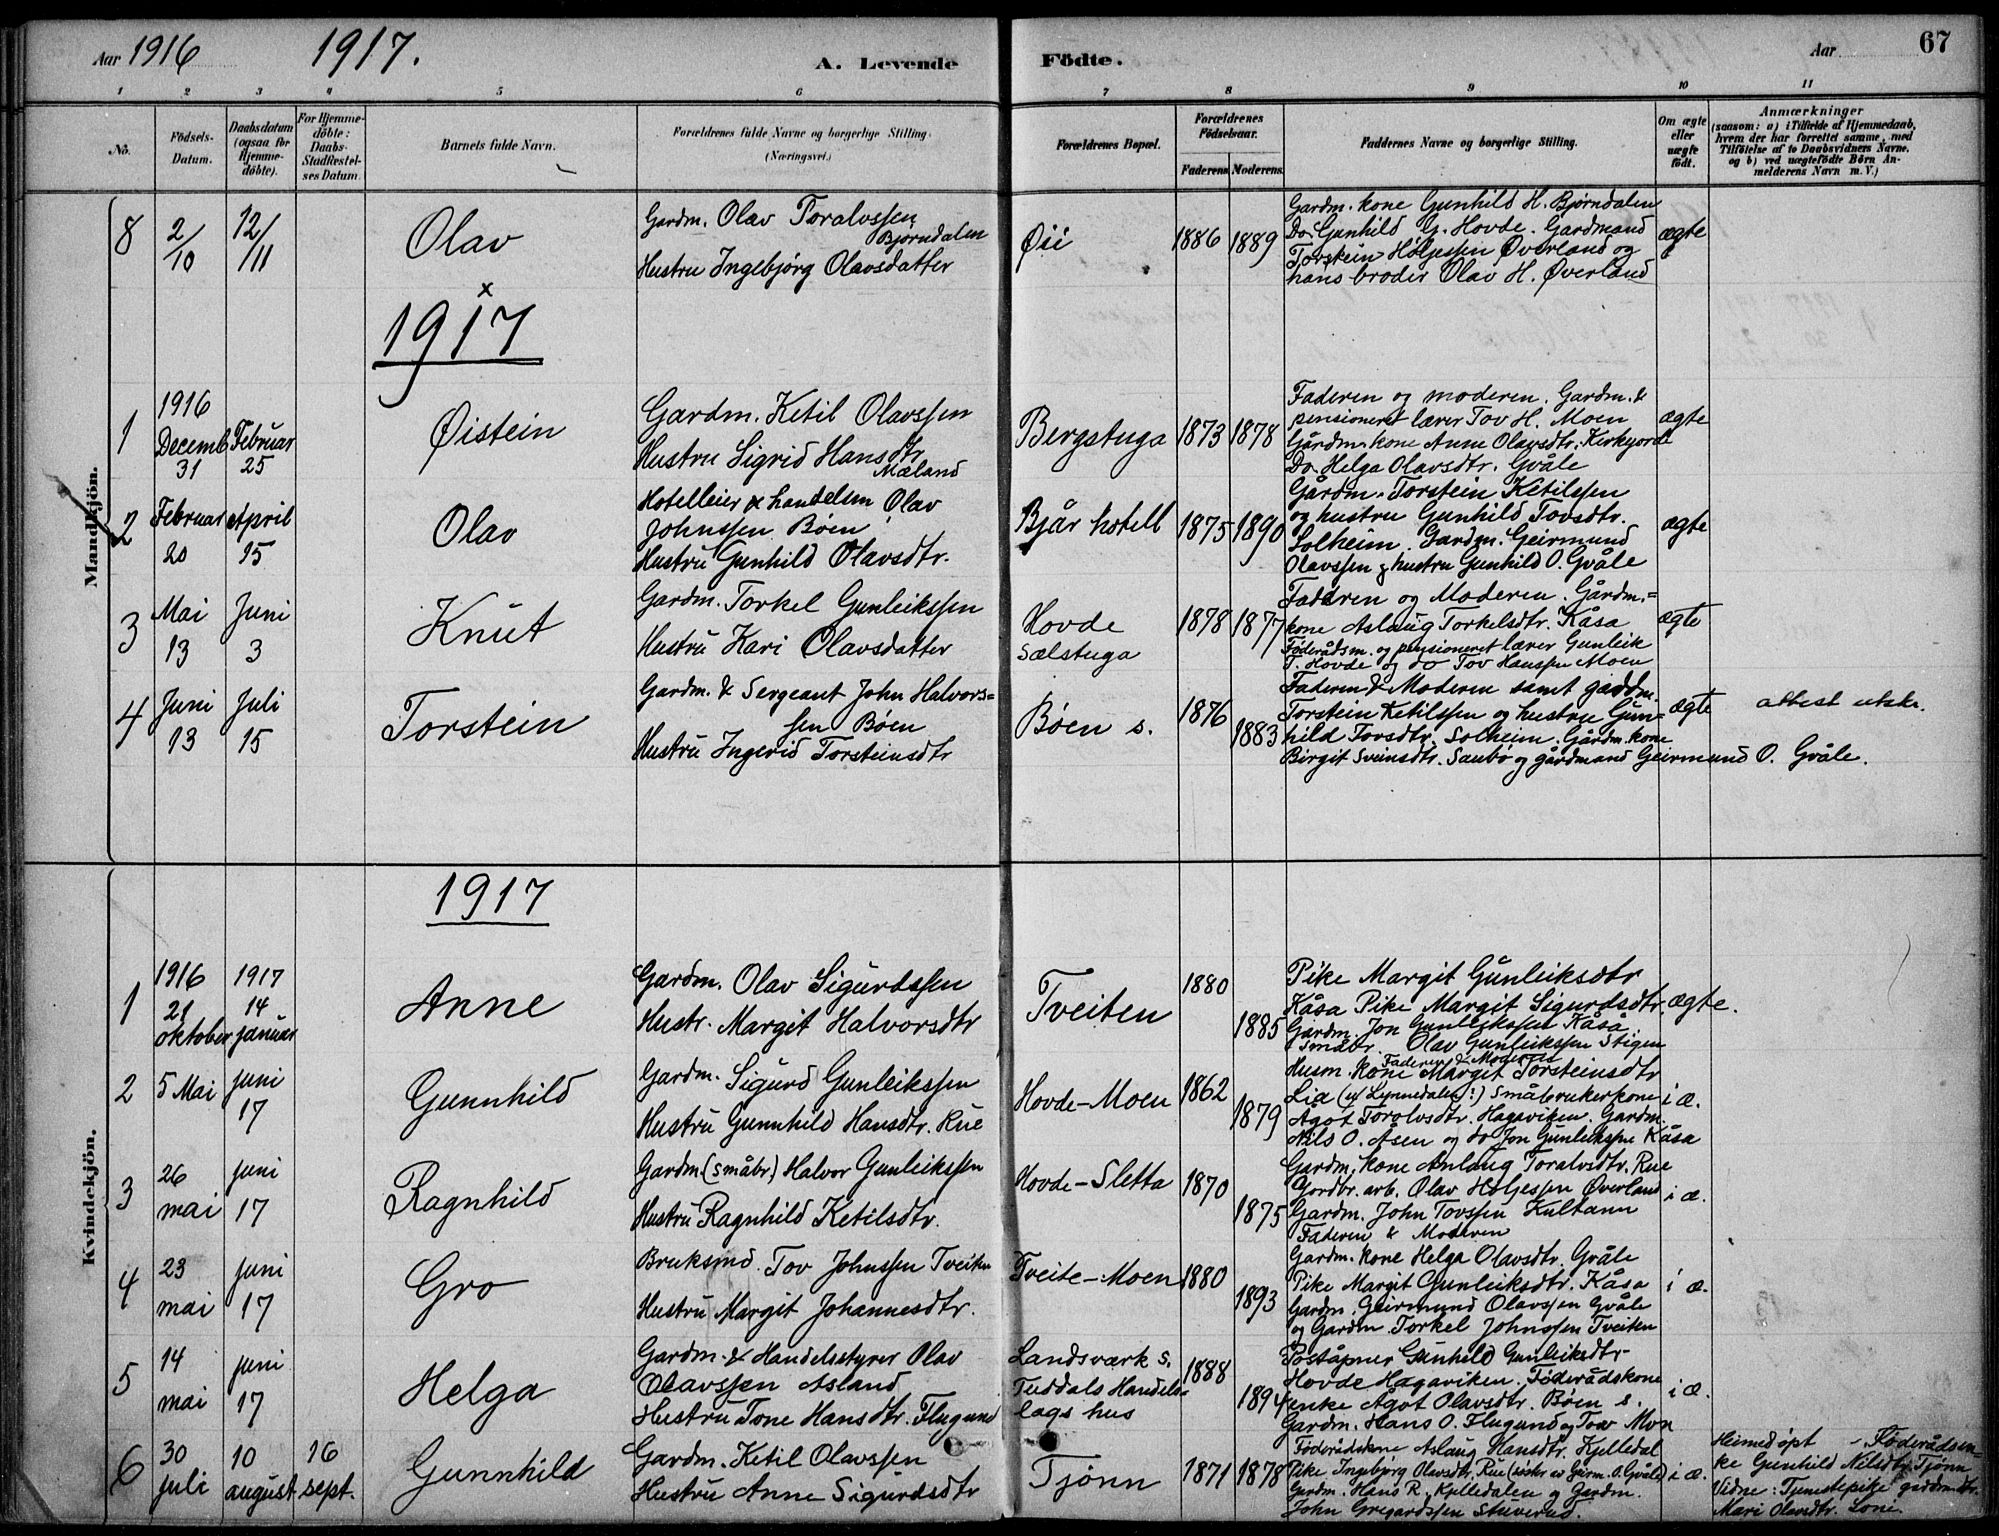 Aar 1916 1917. A. Levende Födte. Aar 67
1 2 3 4 5 6 7 8 9 10 11
No.
Födsels-
Datum.
Daabsdatum
(ogsaa for
Hjemme-
döbte).
For Hjemme-
döbte:
Daabs-
Stadfæstel-
ses Datum.
Barnets fulde Navn.
Forældrenes fulde Navne og borgerlige Stilling.
(Næringsvei.)
Forældrenes Bopæl.
Forældrenes
Födselsaar.
Faderens Moderens
Faddernes Navne og borgerlige Stilling.
Om ægte
eller
uægte
födt.
Anmærkninger
(saasom: a) i Tilfælde af Hjemmedaab,
hvem der har forrettet samme, med
Tilföielse af to Daabsvidners Navne,
og b) ved uægtefödte Börn An-
melderens Navn m. V.)
Mandkjön.
8
2/10
12/11
Olav
Gardm. Olav Toralvssen
Bjørndalen
Hustru Ingebjørg Olavsdatter
Øii
1886 1889
Gardm. kone Gunhild H. Bjørndalen
Do Gunhild G. Hovde. Gardmand
Torstein Holjessen Øverland og
hans broder Olav H. Øverland
ægte
x
1917
1
1916
Decemb
31
Februar
25
Øistein
Gardm. Ketil Olavssen
Hustru Sigrid Hansdtr
Mæland
Bergstuga
1873 1878
Faderen og moderen. Gardm. &
pensioneret lærer Tov H. Moen
Gårdm. kone Anne Olavsdtr. Kirkejorde
Do Helga Olavsdtr. Gvåle
ægte
2
Februar
20
April
15
Olav
Hotelleier & handelsm Olav
Johnssen Bøen
Hustru Gunhild Olavsdtr.
Bjår hotell
1875 1890
Gårdm. Torstein Ketilssen
og hustru Gunhild Tovsdtr.
Solheim. Gardm. Geirmund
Olavssen & hustru Gunhild O. Gvåle
ægte
3
Mai
13
Juni
3
Knut
Gardm. Torkel Gunleikssen
Hustru Kari Olavsdatter
Hovde
Sælstuga
1878 1877
Faderen og Moderen. Gårdm.=
kone Aslaug Torkelsdtr. Kåsa
Føderådsm. og pensioneret lærer Gunleik
T. Hovde og do Tov Hanssen Moen
ægte
4
Juni
13
Juli
15
Torstein
Gardm. & Sergeant John Halvors=
sen Bøen
Hustru Ingerid Torsteinsdtr
Bøen s.
1876
1883
Faderen & Moderen samt gardm.
Torstein Ketilssen og hustru Gun=
hild Tovsdtr. Solheim. Gårdm. kone
Birgit Sveinsdtr. Saubø og gårdmand Geirmund O. Gvåle.
ægte
attest utskr.
Kvindekjön.
1917
1
1916
21
oktober
1917
14
januar
Anne
Gardm. Olav Sigurdssen
Hustr. Margit Halvorsdtr
Tveiten
1880
1885
Pike Margit Gunleiksdtr
Kåsa Pike Margit Sigurdsdtr.
Gardm. Jon Gunleikssen Kåsa.
Småbr. Olav Gunleikssen Stigen
ægte.
2
5 Mai
juni
17
Gunnhild
Gardm. Sigurd Gunleikssen
Hustru Gunnhild Hansdtr. Rue
Hovde-Moen
1862
1879
Faderen & Moderen
Husm. kone Margit Torsteinsdtr
Lia Småbrukerkone
Ågot Toralvsdtr. Hagaviken. Gardm.
Nils O. Åsen og do Jon Gunleikssen Kåsa
i æ.
3
26
mai
juni
17
Ragnhild
Gardm. (småbr) Halvor Gunleikssen
Hustru Ragnhild Ketilsdtr.
Hovde-Sletta
1870
1875
Gardm. kone Anlaug Toralvsdtr. Rue
Gordbr. arb. Olav Holjessen Øverland
Gardm. John Tovssen Kultann
Faderen & Moderen
i æ.
4
23
mai
juni
17
Gro
Bruksmd. Tov Johnssen Tveiten
Hustru Margit Johannesdtr.
Tveite-Moen
1880
1893
Gardm. kone Helga Olavsdtr. Gvåle
Pike Margit Gunleiksdtr. Kåsa
Gardm. Geirmund Olavssen Gvåle
og Gardm. Torkel Johnssen Tveiten
i æ.
5
14
mai
juni
17
Helga
Gardm. & Handelsstyrer Olav
Olavssen Åsland
Hustru Tone Hansdtr. Flugund
Landsværk s.
Tuddals Handels-
lags hus
1888
1894
Poståpner Gunhild Gunleiksdtr-
Hovde Hagaviken. Føderådskone
enke Ågot Olavsdtr. Bøen s.
Gardm. Hans O. Flugund og Tov Mon
i æ.
6
30
juli
10
august
16
sept.
Gunnhild
Gardm. Ketil Olavssen
Hustru Anne Sigurdsdtr
Tjønn
1871 1878
Føderådskone Aslaug Hansdtr. Kjelledal
Pike Ingebjørg Olavsdtr. Rue (søster av Geirm. O. Gvåle)
Gardm. Hans R. Kjelledalen og Gardm.
John Gregardssen Stuverud.
i æ.
Heimedøpt - Føderådsen-
ke Gunhild Nilsdtr. Tjønn
Vidne: Tjenestepike gardmdtr.
Mari Olavdtr. Loni